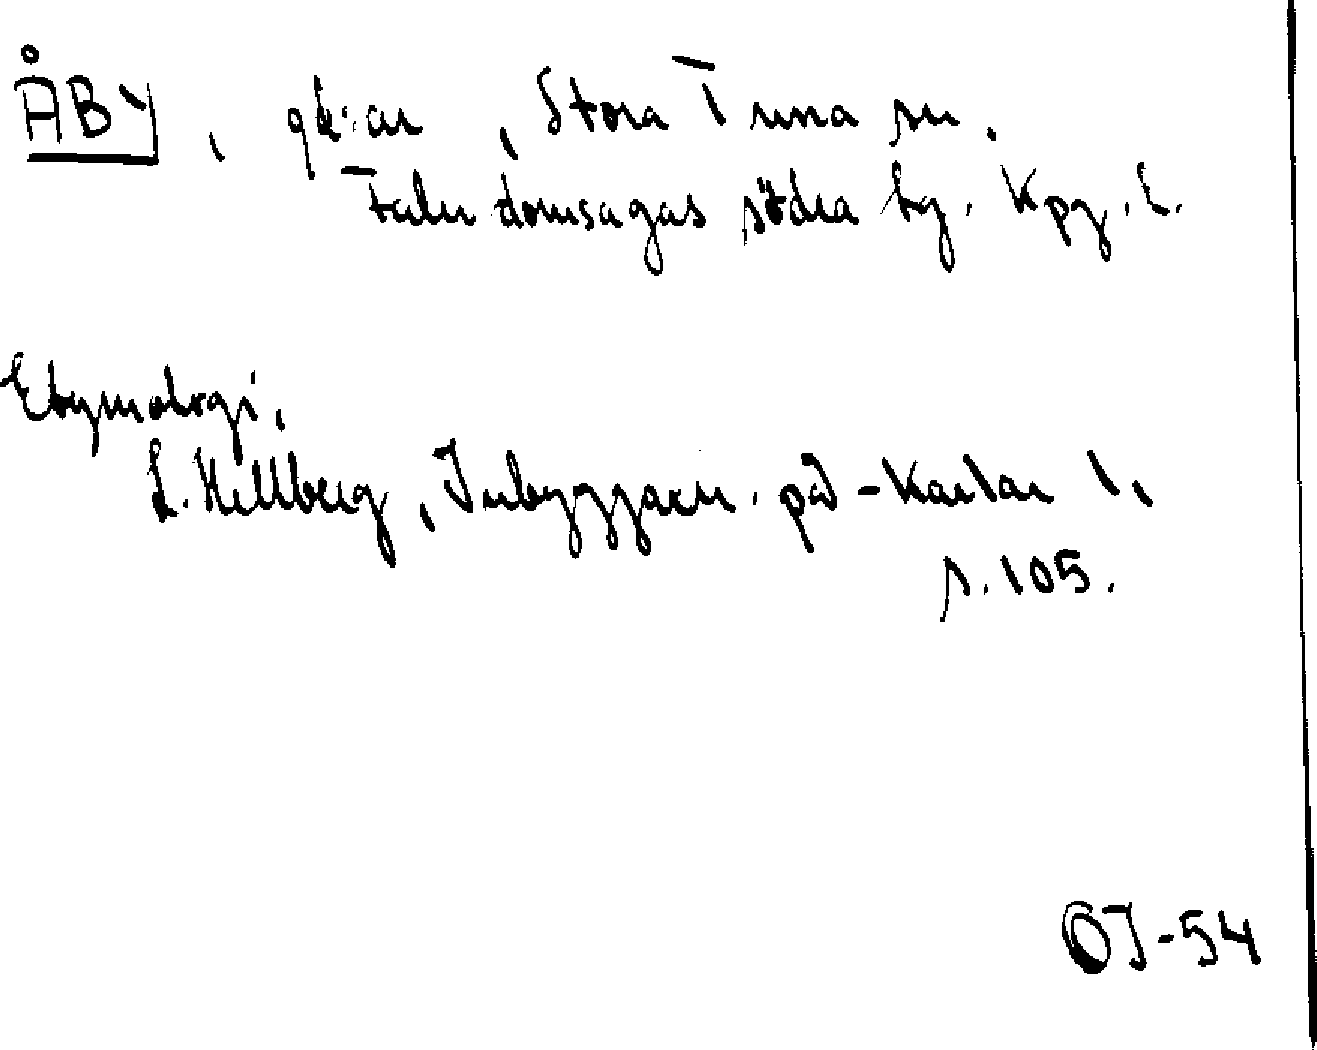 ÅBY, gd:ar, Stora Tuna sn.
Falu domsagas södra tg. Kpg. l.
Etymologi.
L. Hellberg, Inbyggarn. på -karlar 1,
s. 105.
OJ-54